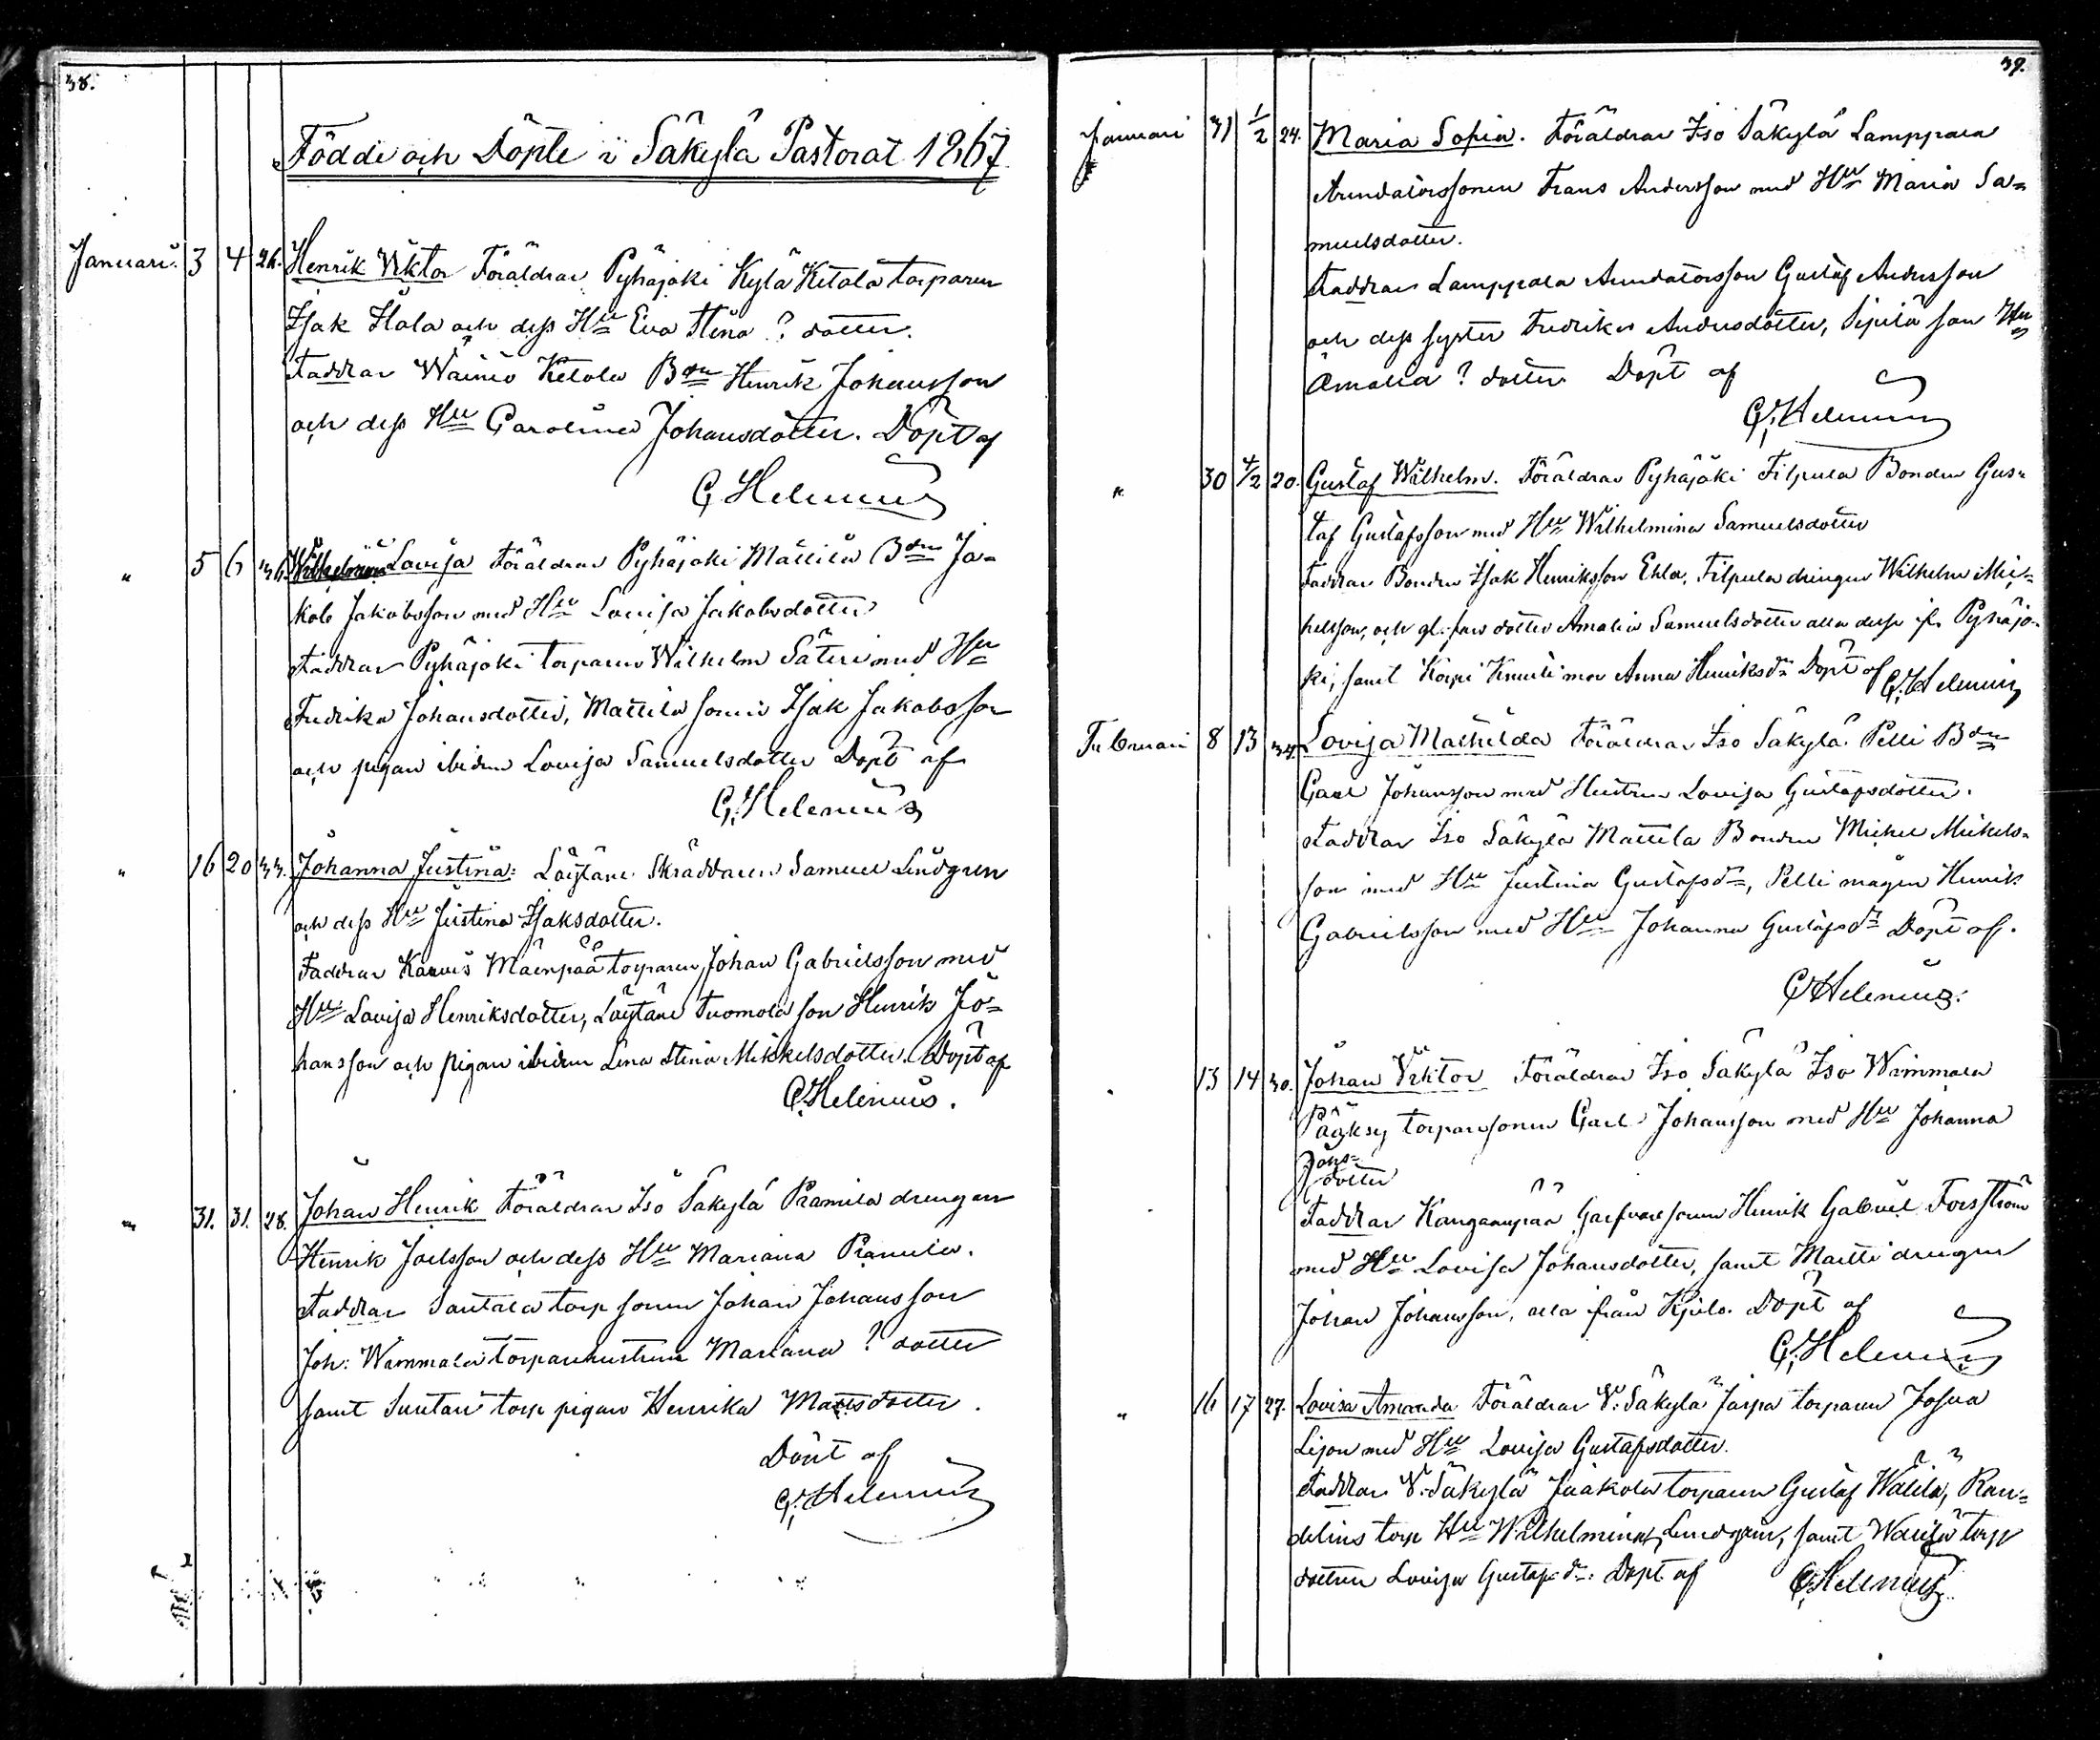 38.
Födde och Döpte i Säkylä Pastorat 1867
Januari. 3 4 26. Henrik Viktor Föräldrar Pyhäjoki Kylä Ketola torparen
Isak Ilola och dess Hu Eva Stina ? dotter.
Faddrar Wäinio Ketola Bdn Henrik Johansson
och dess Hu Carolina Johansdotter. Döpt af
G Helenius
" 5 6 36. Lovisa Föräldrar Pyhäjoki Mattila Bdn Ja=
kob Jakobsson med Hu Lovisa Jakobsdotter
Faddrar Pyhäjoki torparen Wilhelm Säteri med Hu
Fredrika Johansdotter, Mattila sonen Isak Jakobsson
och pigan ibidem Lovisa Samuelsdotter Döpt af
G. Helenius
" 16 20 33. Johanna Justina: Löytäne Skräddaren Samuel Lindgren
och dess Hu Justina Isaksdotter.
Faddrar Mäenpää torparen Johan Gabrielsson med
Hu Lovisa Henriksdotter, Löytäne Tuomola son Henrik Jo=
hansson och pigan ibidem Lena Stina Mikkelsdotter. Döpt af
G. Helenius.
" 31. 31. 28. Johan Henrik Föräldrar Iso Säkylä Pramila drengen
Henrik Joelsson och dess Hu Mariana Pramila.
Faddrar Santala torp sonen Johan Johansson
Joh: Wammala torparehustrun Mariana ? dotter
samt torp pigan Henrika Matsdotter.
Döpt af
G. Helenius
39.
Januari 31 1/2 24. Maria Sofia. Föräldrar Iso Säkylä Lamppala
Arendatorssonen Frans Andersson med Hu Maria Sa=
muelsdotter.
Faddrar Lamppala Arendatorsson Gustaf Andersson
och dess syster Fredrika Andersdotter, Sipilä son Hu
Amalia ? dotter Döpt af
G. Helenius
" 30 4/2 20. Gustaf Wilhelm. Föräldrar Pyhäjoki Filpula Bonden Gus=
taf Gustafsson med Hu Wilhelmina Samuelsdotter
Faddrar Bonden Isak Henriksson Ehla, Filpula drengen Wilhelm Mic=
helsson, och gl. fars dotter Amalia Samuelsdotter alla dessa ifr. Pyhäjo=
ki, samt Korpi mor Anna Henriksdr Döpt af G. Helenius
Februari 8 13 34. Lovisa Mathilda Föräldrar Iso Säkylä Pelli Bdn
Carl Johansson med Hustru Lovisa Gustafsdotter.
Faddrar Iso Säkylä Mattila Bonden Michel Mickels=
son med Hu Justina Gustafsdr, Pelli mågen Henrik
Gabrielsson med Hu Johanna Gustafsdr Döpt af.
G Helenius.
13 14 30. Johan Viktor Föräldrar Iso Säkylä Iso Wimmala
Pääksy torparesonen Carl Johansson med Hu Johanna
Johs=
dotter
Faddrar Kangaanpää Garfvare sonen Henrik Gabriel Forsström
med Hu Lovisa Johansdotter, samt Martti drengen
Johan Johansson, alla från Kjulo. Döpt af
G. Helenius
" 16 17 27. Lovisa Amanda Föräldrar V. Säkylä Jaspa torparen Josua
med Hu Lovisa Gustafsdotter.
Faddrar V. Säkylä Jaakola torparen Gustaf Wälilä, Ran=
delins torp Hu Wilhelmina Lundgren, samt torp
dottren Lovisa Gustafsdr. Döpt af G. Helenius.